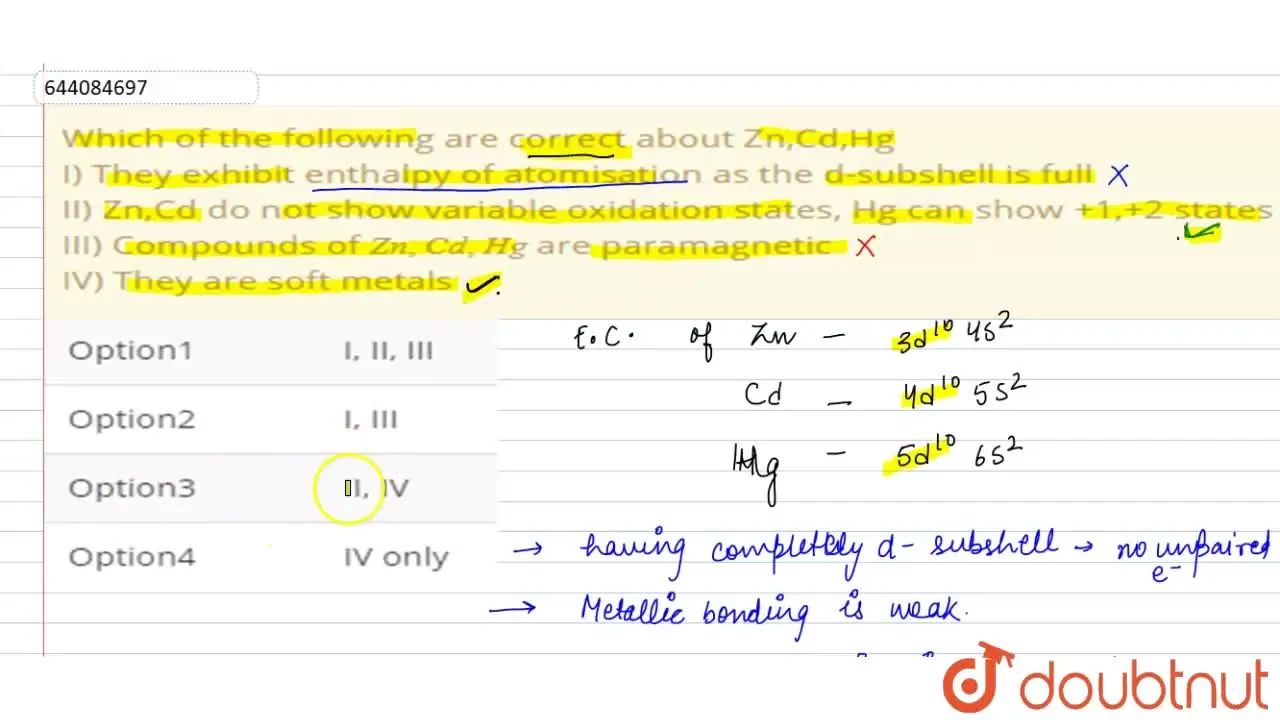 644084697
Which of the following are correct about Zn,Cd,Hg
I) They exhibit enthalpy of atomisation as the d-subshell is full X
II) Zn,Cd do not show variable oxidation states, Hg can show +1,+2 states
III) Compounds of Zn, Cd, Hg are paramagnetic X
IV) They are soft metals
E.C. of Zn – 3d10 4s2
Option1 I, II, III
Cd – 4d10 5s2
Option2 I, III
Hg – 5d10 6s2
Option3 II, IV
→ having completely d- subshell → no unpaired e-
Option4 IV only
→ Metallic bonding is weak.
doubtnut